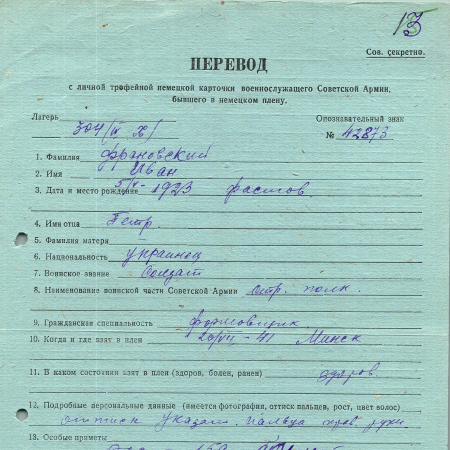 13
Сов. секретно.
ПЕРЕВОД
с личной трофейной немецкой карточки военнослужащего Советской Армии,
бывшего в немецком плену.
Лагерь 304/IV Х/
Опознавательный знак
№ 42873
1. Фамилия Франовский
2. Имя Иван
3. Дата и место рождение 5/V-1923 Фастов.
4. Имя отца Петр.
5. Фамилия матери
6. Национальность украинец
7. Воинское звание Солдат
8. Наименование воинской части Советской Армии стр. полк.
9. Гражданская специальность формовщик
10. Когда и где взят в плен 20/VII-41 Минск
11. В каком состоянии взят в плен (здоров, болен, ранен) здоров.
12. Подробные персональные данные (имеется фотография, оттиск пальцев, рост, цвет волос)
оттиск указат. пальца прав. руки
13. Особые приметы